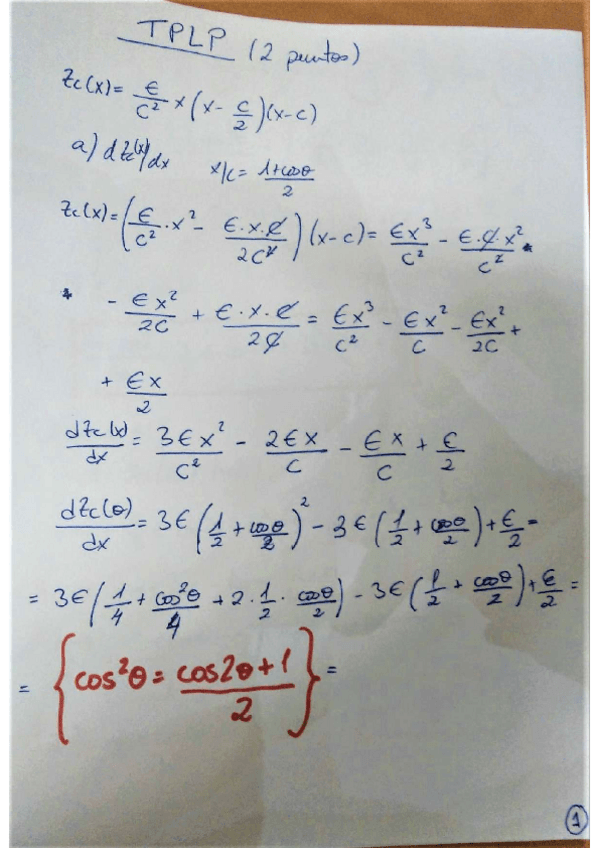 TPLP (2 puntos)
Zc(x)= ϵ/c² x (x - c/2)(x-c)
a) dZc(x)/dx x/c = (1+cosθ)/2
Zc(x)= (ϵ/c² · x² - ϵ·x·c/2c²)(x-c) = ϵx³/c² - ϵ·c·x²/c² *
* - ϵx²/2c + ϵ·x·c/2c = ϵx³/c² - ϵx²/c - ϵx²/2c +
+ ϵx/2
dZc(x)/dx = 3ϵx²/c² - 2ϵx/c - ϵx/c + ϵ/2
dZc(θ)/dx = 3ϵ(1/2 + cosθ/2)² - 3ϵ(1/2 + cosθ/2) + ϵ/2 =
= 3ϵ(1/4 + cos²θ/4 + 2·1/2·cosθ/2) - 3ϵ(1/2 + cosθ/2) + ϵ/2 =
= {cos²θ = (cos2θ+1)/2} =
1